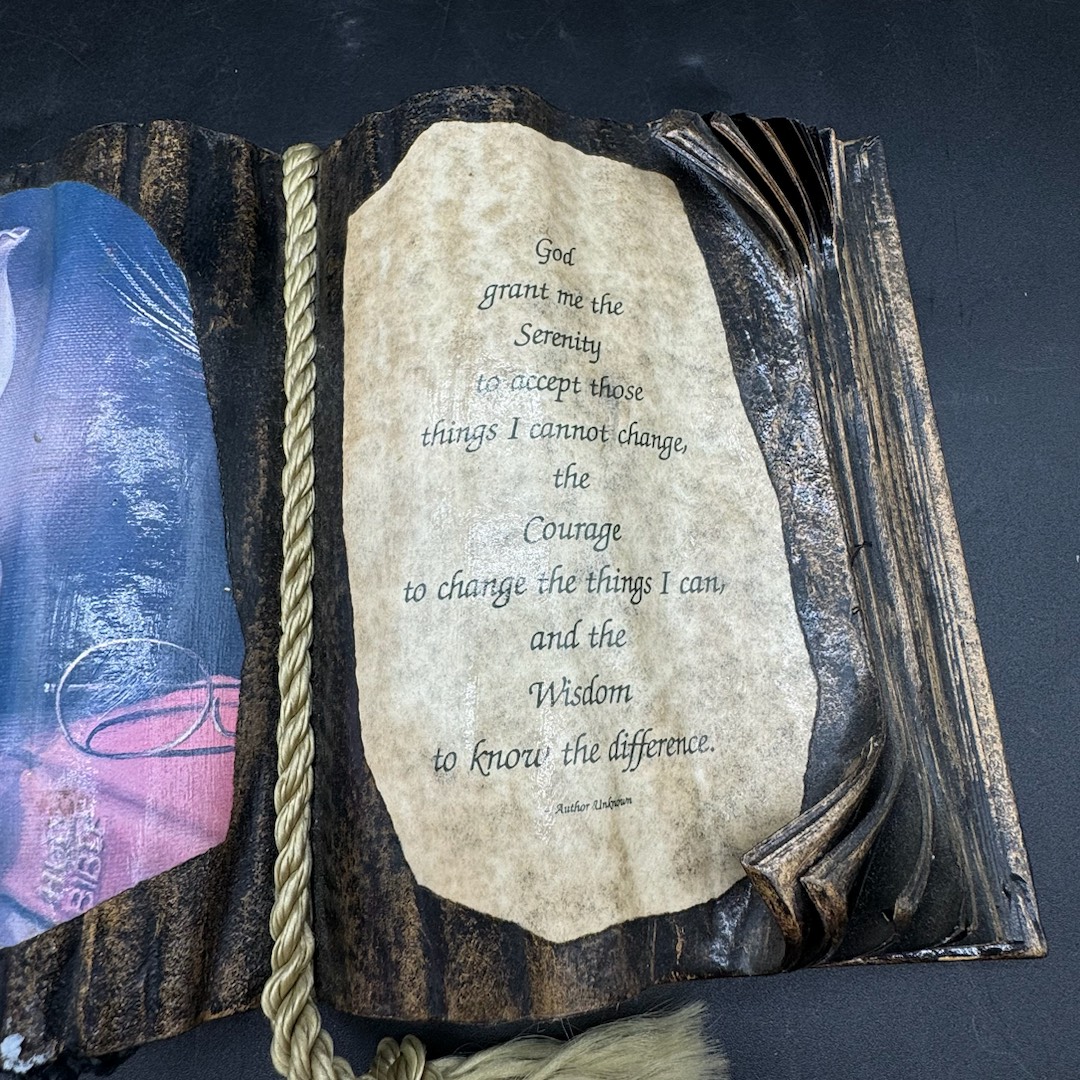 God
grant me the
Serenity
to accept those
things I cannot change,
the
Courage
to change the things I can,
and the
Wisdom
to know the difference.
~ Author Unknown
HOLY
BIBLE